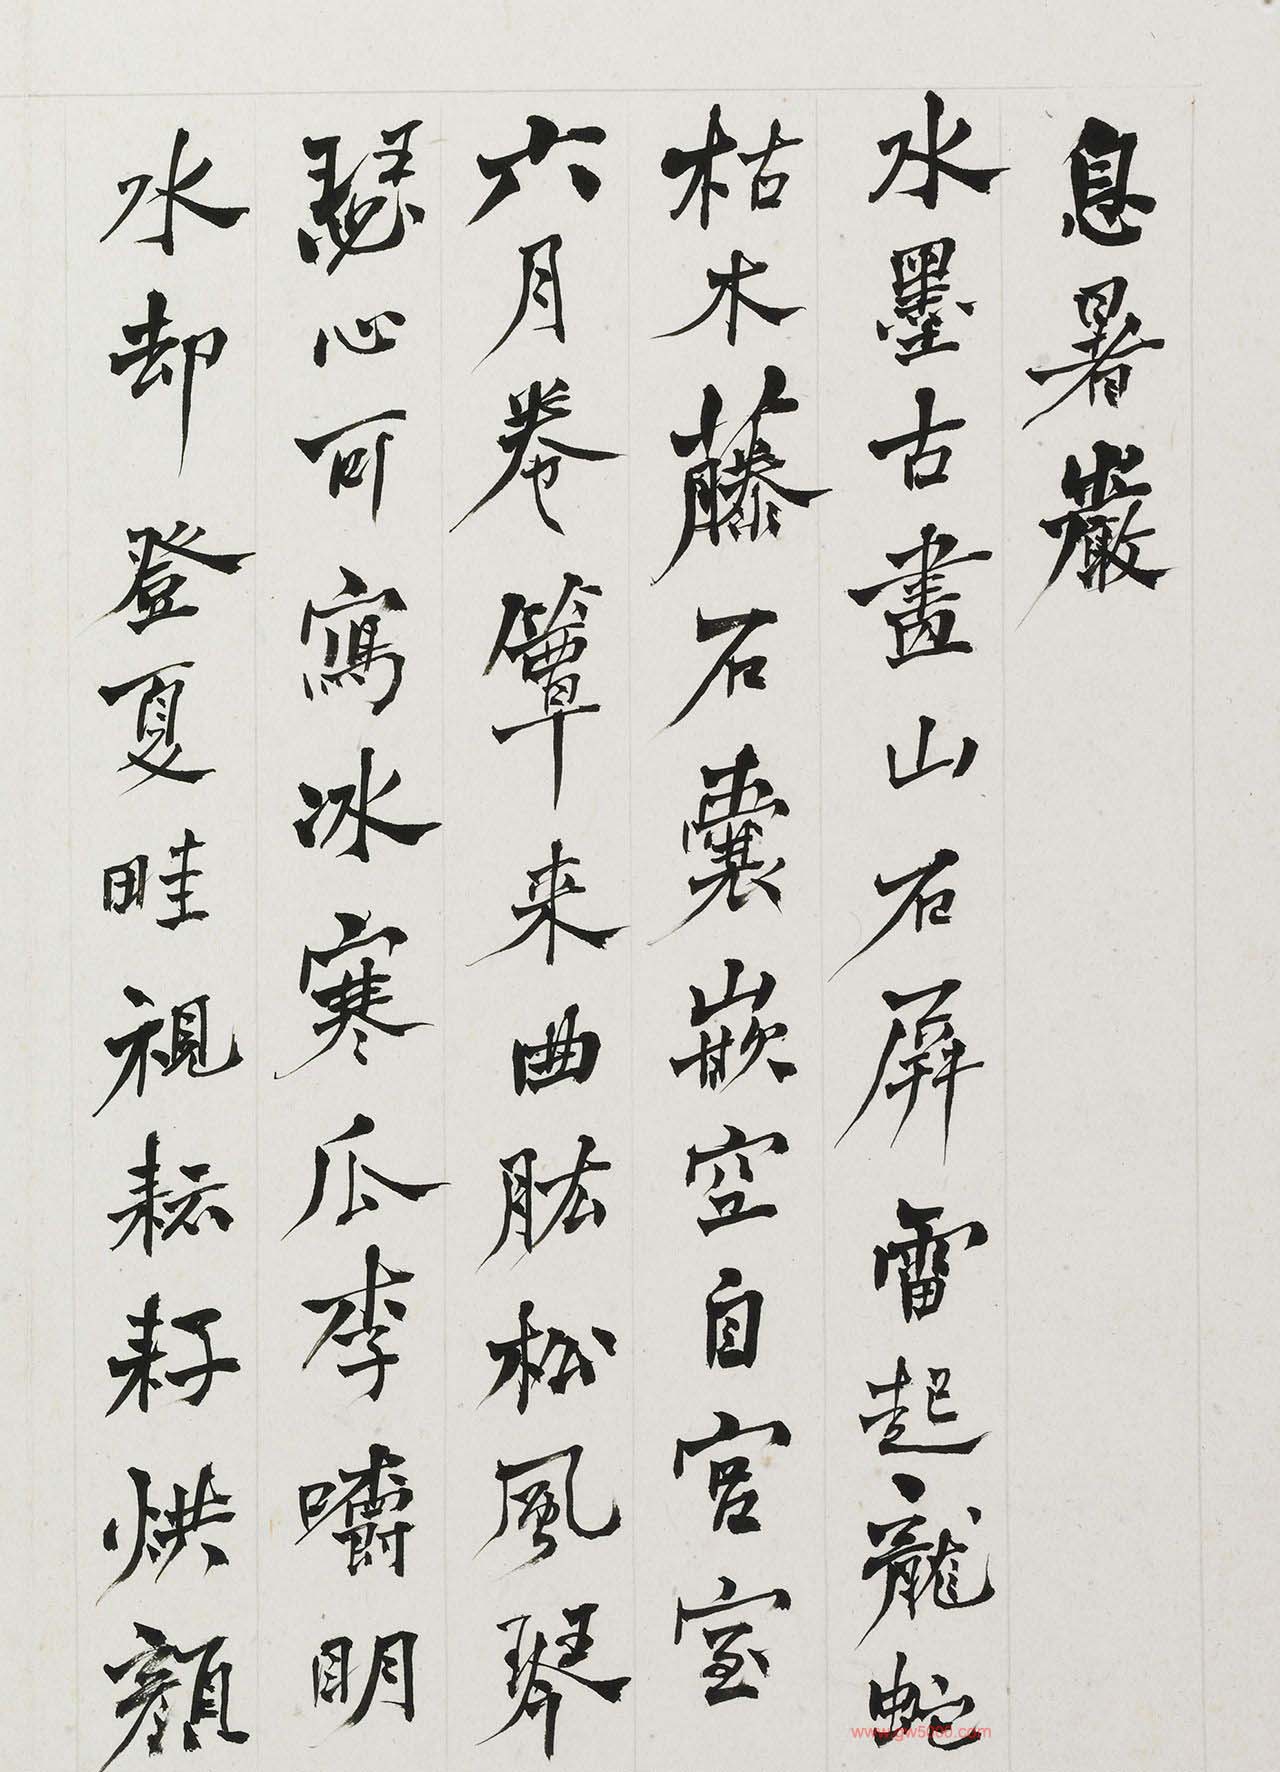 息暑巖
水墨古畫山石屏雷起龍蛇
枯木藤石囊嵌空自宮室
六月卷簟来曲肱松風琴
瑟心可寫冰寒瓜李嚼明
水却登夏畦視耘耔烘顏
www.gw5000.com